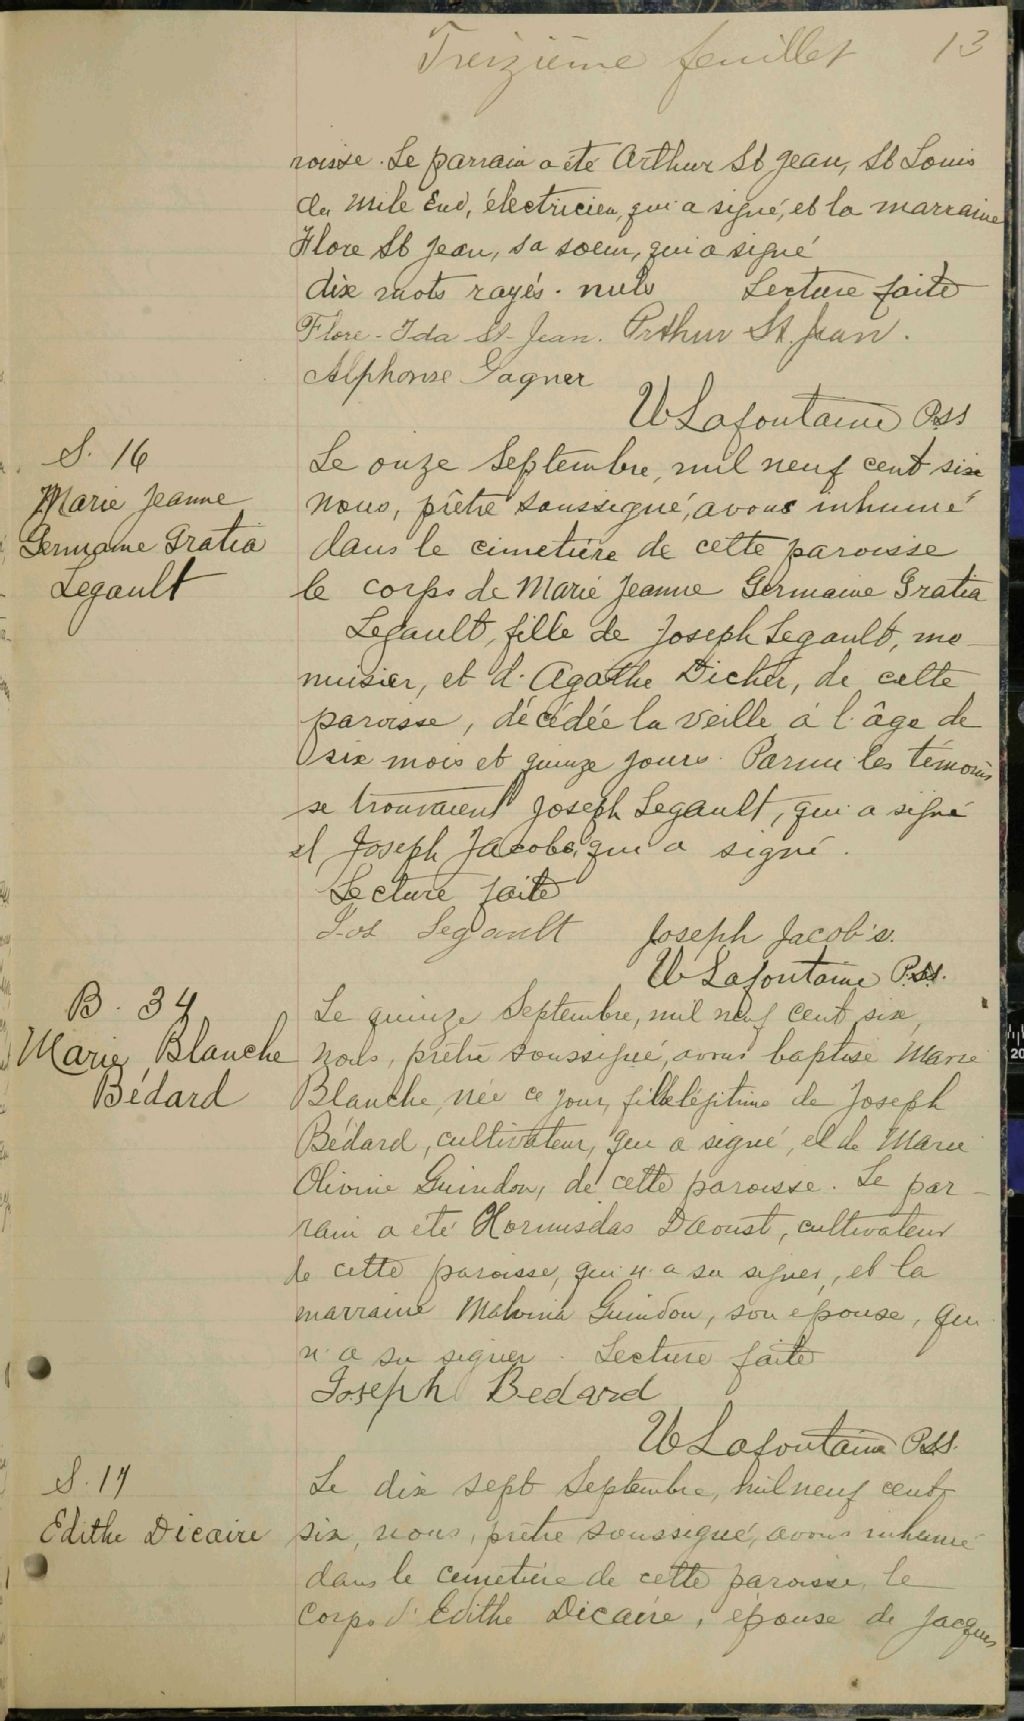 Treizième feuillet 13
roisse. Le parrain a été Arthur St Jean, St Louis
du Mile End, électricien, qui a signé, et la marraine
Flore St Jean, sa soeur, qui a signé
dix mots rayés. nuls Lecture faite
Flore-Ida St-Jean. Arthur St. Jean.
Alphonse Gagner
Lafontaine Pss
S. 16
Marie Jeanne
Germaine Gratia
Legault
Le onze Septembre, mil neuf cent six
nous, prêtre soussigné, avons inhumé
dans le cimetière de cette paroisse
le corps de Marie Jeanne Germaine Gratia
Legault, fille de Joseph Legault, me-
nuisier, et d'Agathe Dicher, de cette
paroisse, décédée la veille à l'âge de
six mois et quinze jours. Parmi les témoins
se trouvaient Joseph Legault, qui a signé
et Joseph Jacobs, qui a signé.
Lecture faite
Jos Legault Joseph Jacob's.
Lafontaine P.S.S.
B. 34
Marie Blanche
Bédard
Le quinze Septembre, mil neuf cent six,
nous, prêtre soussigné, avons baptisé Marie
Blanche, née ce jour, fille légitime de Joseph
Bédard, cultivateur, qui a signé, et de Marie
Olivine Guindon, de cette paroisse. Le par-
rain a été Hormisdas Daoust, cultivateur
de cette paroisse, qui n'a su signer, et la
marraine Malvina Guindon, son épouse, qui
n'a su signer. Lecture faite
Joseph Bedard
Lafontaine P.S.S.
S. 17
Edithe Dicaire
Le dix sept Septembre, mil neuf cent
six, nous, prêtre soussigné, avons inhumé
dans le cimetière de cette paroisse, le
corps d'Edithe Dicaire, épouse de Jacques